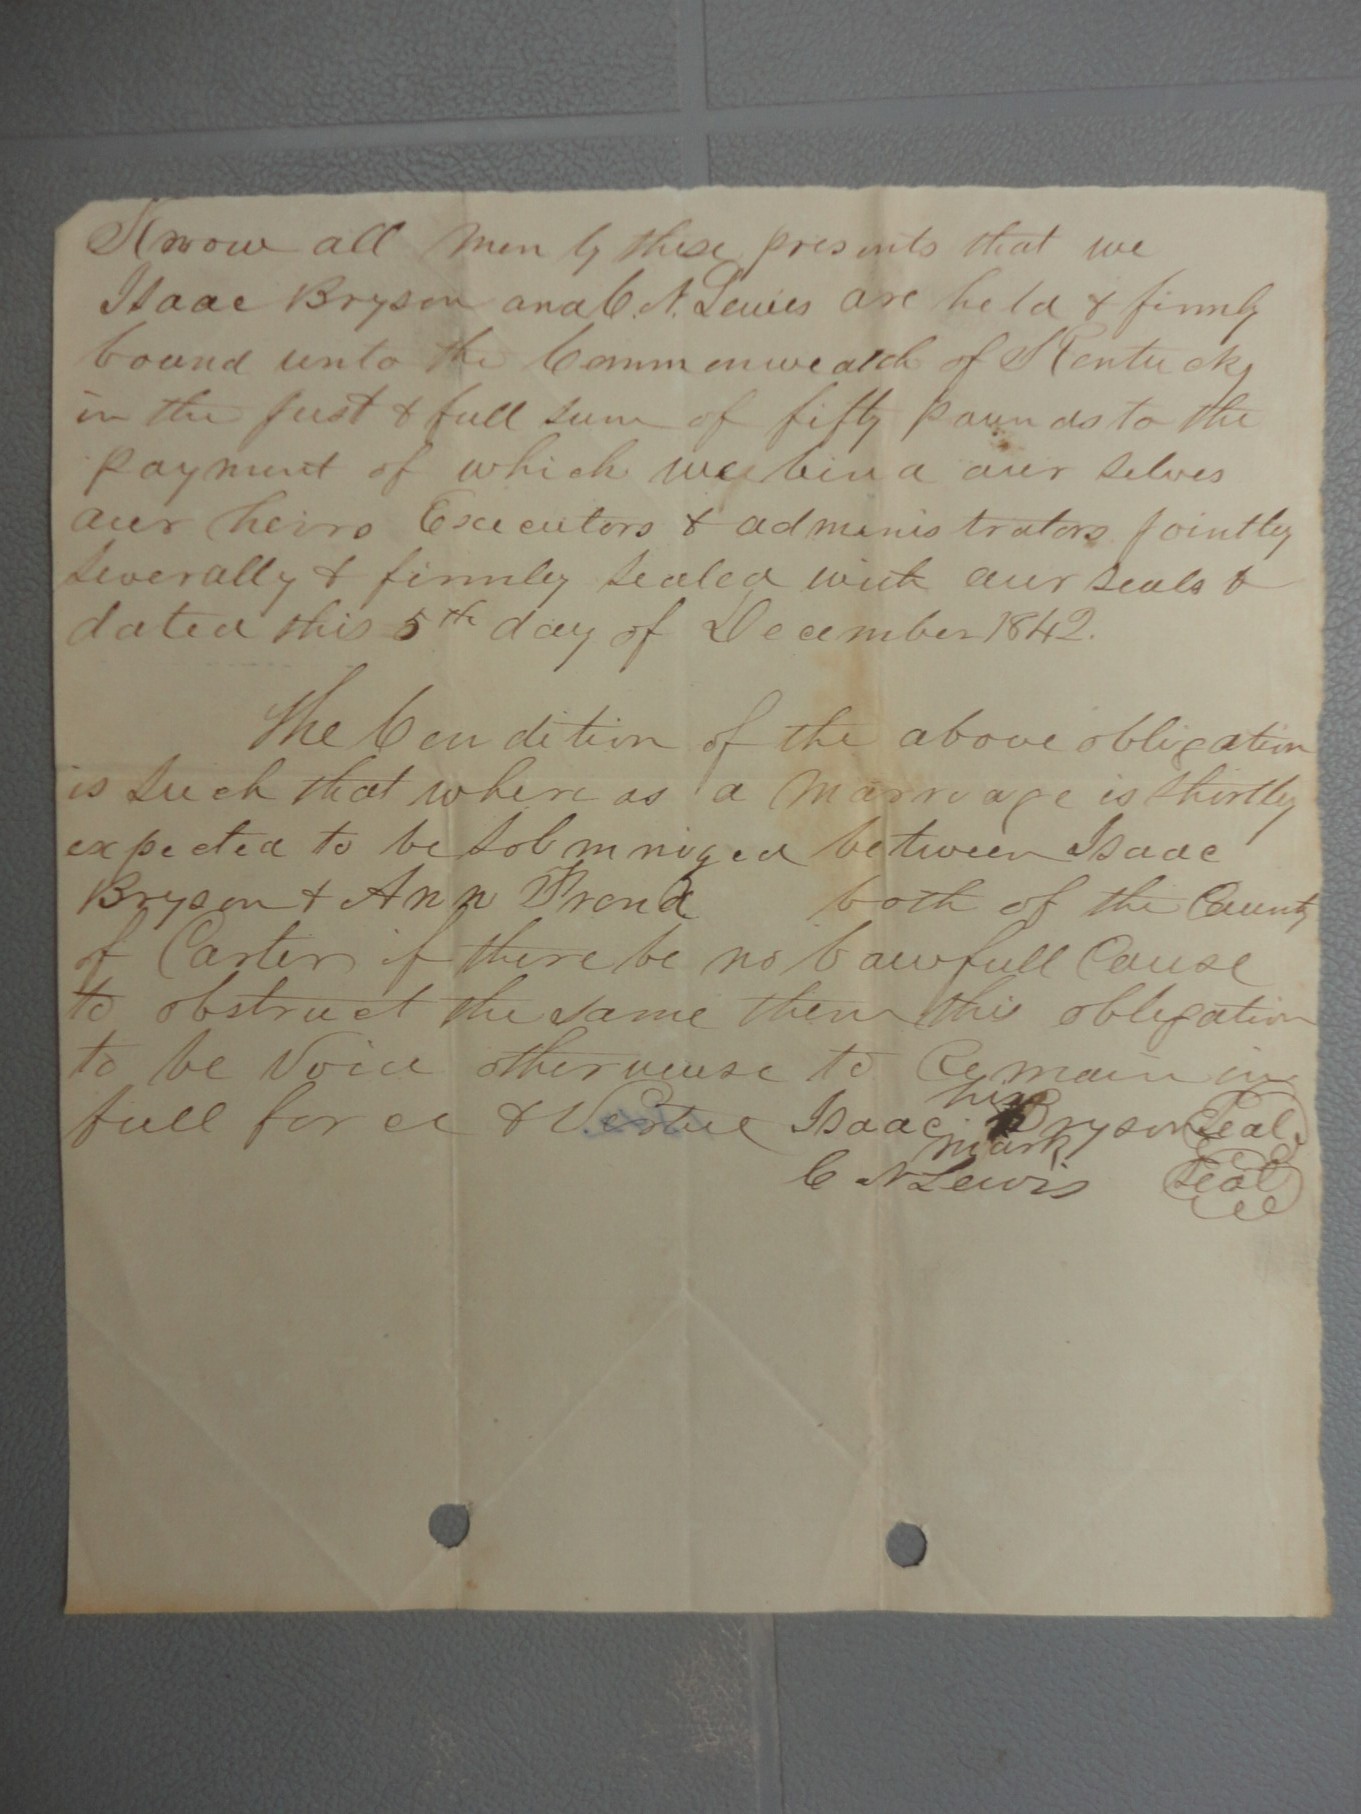 Know all men by these presents that we
Isaac Bryson and C. N. Lewis are held & firmly
bound unto the Commonwealth of Kentucky
in the just & full sum of fifty pounds to the
payment of which we bind our selves
our heirs Executors & administrators jointly
severally & firmly sealed with our seals &
dated this 5th day of December 1842.
The Condition of the above obligation
is such that where as a marriage is shortly
expected to be between Isaac
Bryson & Ann both of the County
of Carter if there be no lawfull Cause
to obstruct the same then this obligation
to be Void otherwise to Remain in
full force & Vertue Isaac his Bryson Seal
mark
C N Lewis Seal